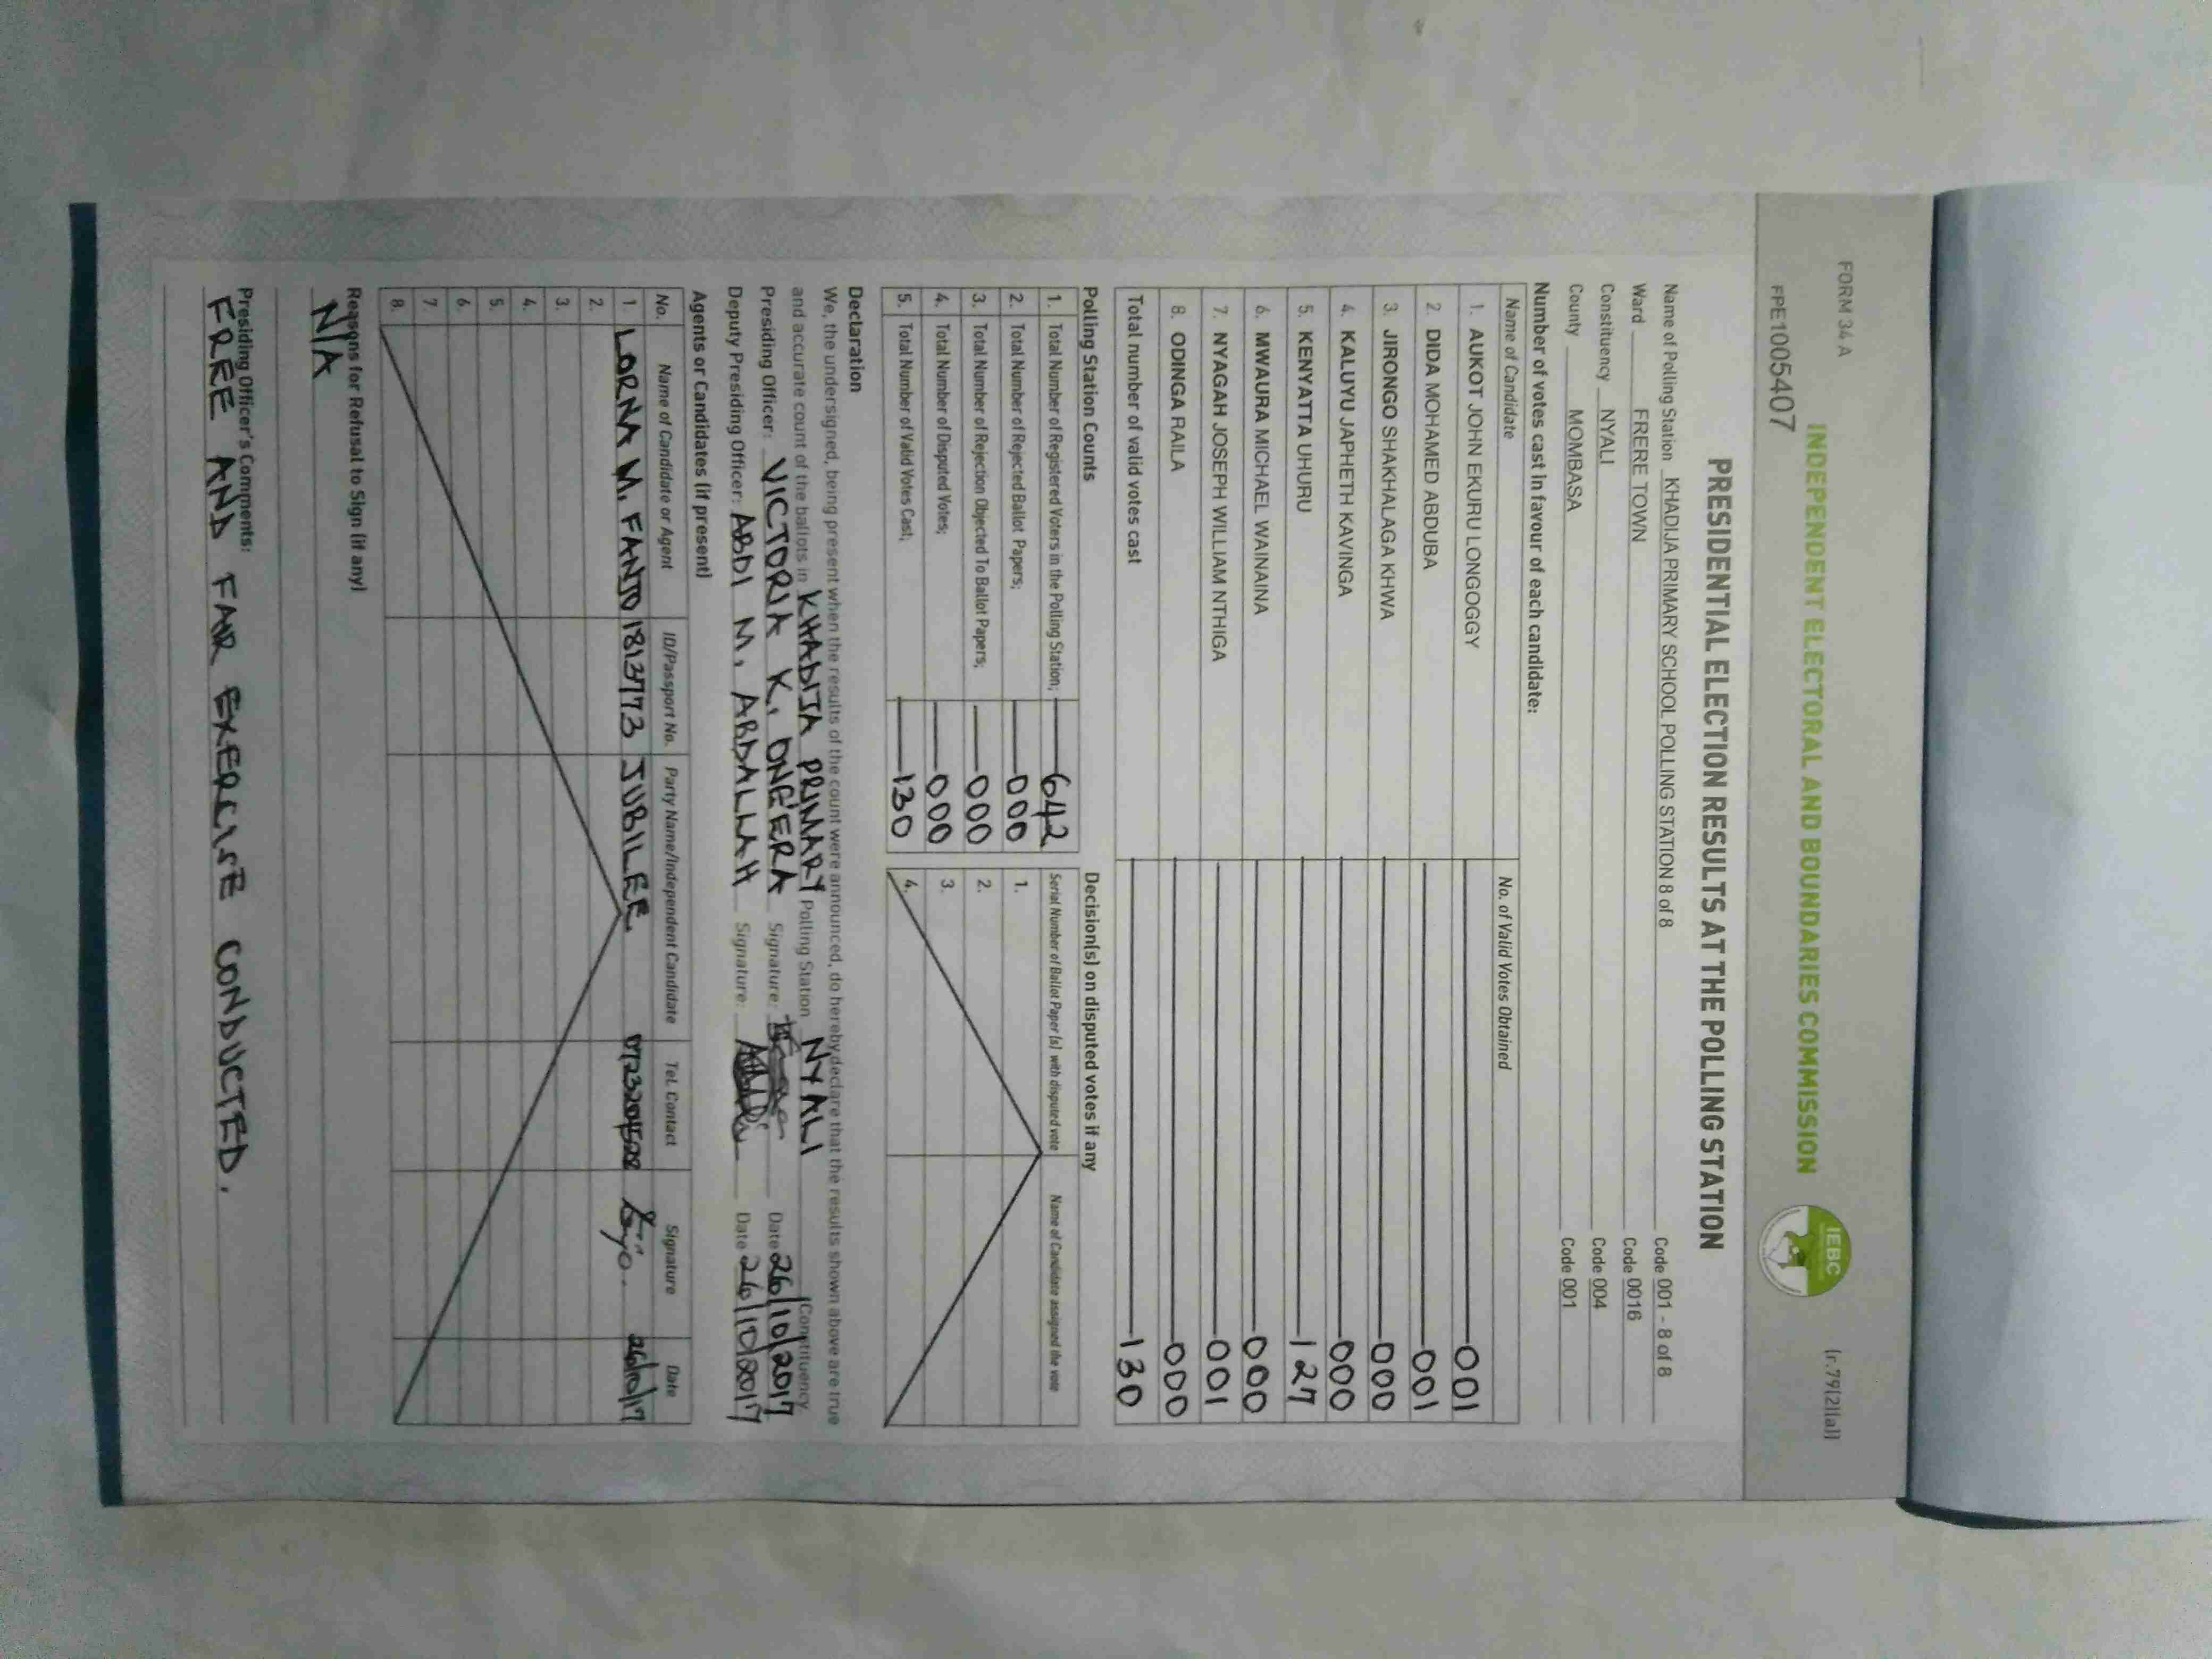 FORM 34 A
(r.79(2)(a))
FPE1005407
INDEPENDENT ELECTORAL AND BOUNDARIES COMMISSION
IEBC
PRESIDENTIAL ELECTION RESULTS AT THE POLLING STATION
Name of Polling Station KHADIJA PRIMARY SCHOOL POLLING STATION 8 of 8 Code 001 - 8 of 8
Ward FRERE TOWN Code 0016
Constituency NYALI Code 004
County MOMBASA Code 001
Number of votes cast in favour of each candidate:
Name of Candidate No. of Valid Votes Obtained
1. AUKOT JOHN EKURU LONGOGGY 001
2. DIDA MOHAMED ABDUBA 001
3. JIRONGO SHAKHALAGA KHWA 000
4. KALUYU JAPHETH KAVINGA 000
5. KENYATTA UHURU 127
6. MWAURA MICHAEL WAINAINA 000
7. NYAGAH JOSEPH WILLIAM NTHIGA 001
8. ODINGA RAILA 000
Total number of valid votes cast 130
Polling Station Counts
1. Total Number of Registered Voters in the Polling Station; 642
2. Total Number of Rejected Ballot Papers; 000
3. Total Number of Rejection Objected To Ballot Papers; 000
4. Total Number of Disputed Votes; 000
5. Total Number of Valid Votes Cast; 130
Decision(s) on disputed votes if any
Serial Number of Ballot Paper (s) with disputed vote Name of Candidate assigned the vote
1.
2.
3.
4.
Declaration
We, the undersigned, being present when the results of the count were announced, do hereby declare that the results shown above are true
and accurate count of the ballots in KHADIJA PRIMARY Polling Station NYALI Constituency.
Presiding Officer: VICTORIA K. ONGERA Signature: Date 26/10/2017
Deputy Presiding Officer: ABDI M. ABDALLAH Signature: Date 26/10/2017
Agents or Candidates (if present)
No. Name of Candidate or Agent ID/Passport No. Party Name/Independent Candidate Tel. Contact Signature Date
1. LORNA M. JUBILEE 26/10/17
2.
3.
4.
5.
6.
7.
8.
Reasons for Refusal to Sign (if any)
N/A
Presiding Officer's Comments:
FREE AND FAIR EXERCISE CONDUCTED.